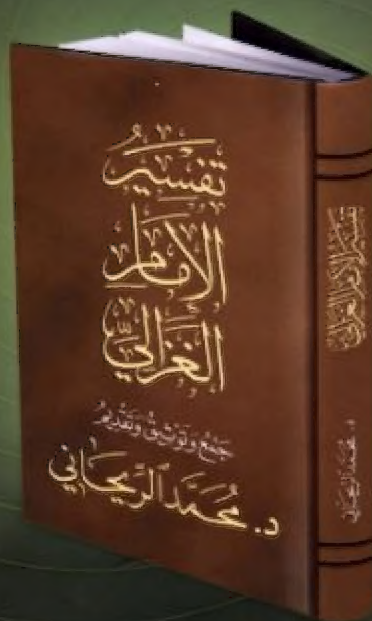 تفسير
الإمام
الغزالي
جمع وتوثيق وتقديم
د. محمد الريحاني
تفسير الإمام الغزالي
د. محمد الريحاني